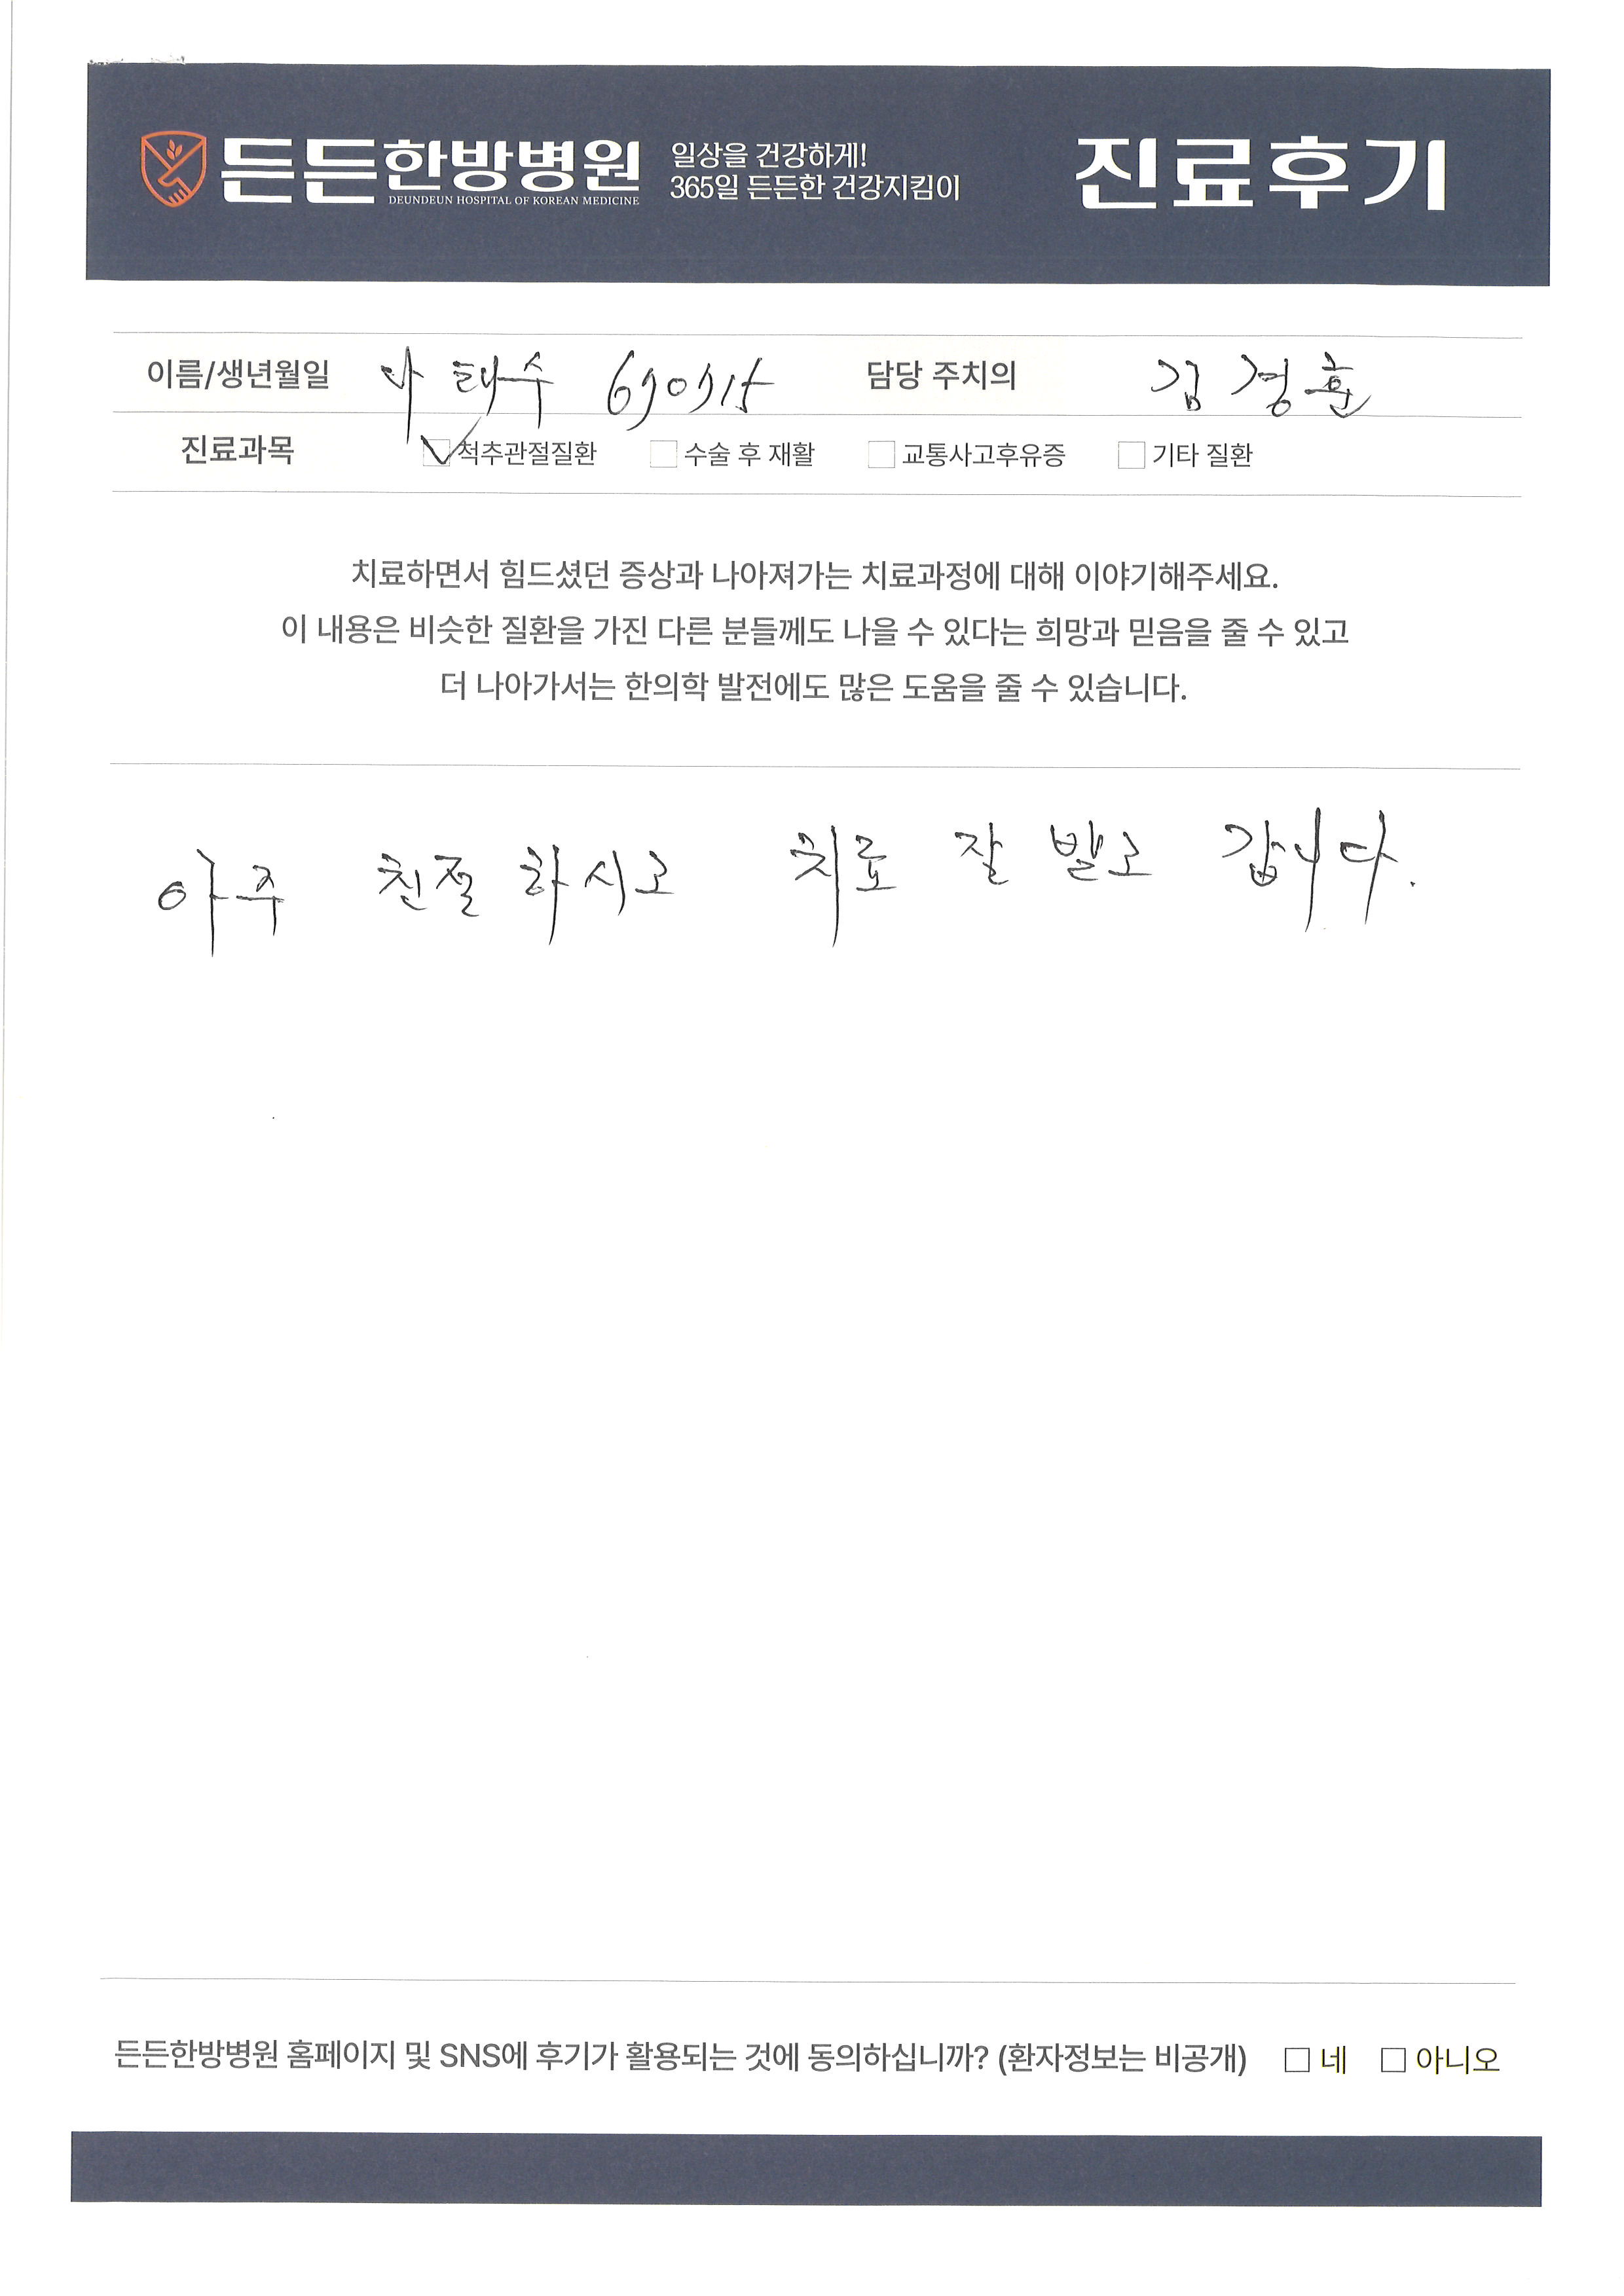 든든한방병원
DEUNDEUN HOSPITAL OF KOREAN MEDICINE
일상을 건강하게!
365일 든든한 건강지킴이
진료후기
이름/생년월일 나 태수 690915 담당 주치의 김경훈
진료과목 척추관절질환 수술 후 재활 교통사고후유증 기타 질환
치료하면서 힘드셨던 증상과 나아져가는 치료과정에 대해 이야기해주세요.
이 내용은 비슷한 질환을 가진 다른 분들께도 나을 수 있다는 희망과 믿음을 줄 수 있고
더 나아가서는 한의학 발전에도 많은 도움을 줄 수 있습니다.
아주 친절 하시고 치료 잘 받고 갑니다.
든든한방병원 홈페이지 및 SNS에 후기가 활용되는 것에 동의하십니까? (환자정보는 비공개) □ 네 □ 아니오